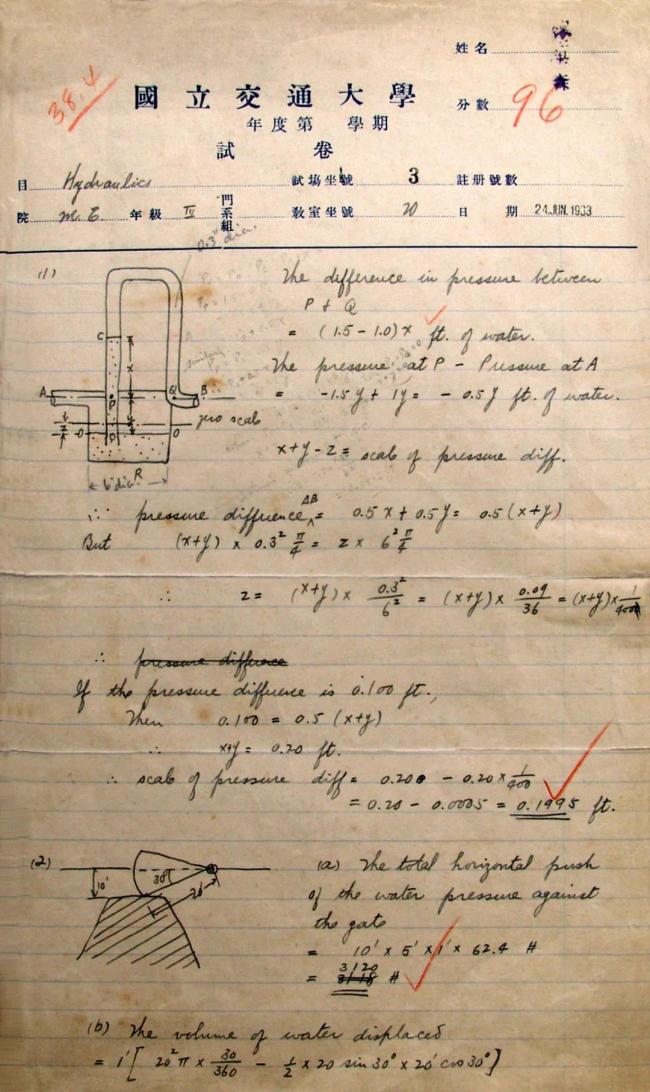 姓名
國立交通大學
分數 96
38.4
年度第 學期
試卷
目 Hydraulics 試場坐號 3 註册號數
院 M.E. 年級 IV 門系組 教室坐號 20 日期 24 JUN. 1933
(1)
0.3" dia.
C
A
P
Q
B
zero scale
O
O
z
R
6" dia.
The difference in pressure between
P + Q
= (1.5 - 1.0) x ft. of water.
The pressure at P - Pressure at A
= -1.5y + 1y = - 0.5y ft. of water.
x+y-z = scale of pressure diff.
∴ pressure difference AB = 0.5x + 0.5y = 0.5(x+y)
But (x+y) × 0.3² π/4 = z × 6² π/4
∴ z = (x+y) × 0.3²/6² = (x+y) × 0.09/36 = (x+y) × 1/400
∴ pressure difference
If the pressure difference is 0.100 ft.,
Then 0.100 = 0.5 (x+y)
∴ x+y = 0.20 ft.
∴ scale of pressure diff = 0.200 - 0.20 × 1/400
= 0.20 - 0.0005 = 0.1995 ft.
(2)
10'
30°
20'
(a) The total horizontal push
of the water pressure against
the gate
= 10' × 5' × 1' × 62.4 #
= 3120 #
(b) The volume of water displaced
= 1' [ 20² π × 30/360 - 1/2 × 20 sin 30° × 20' cos 30° ]